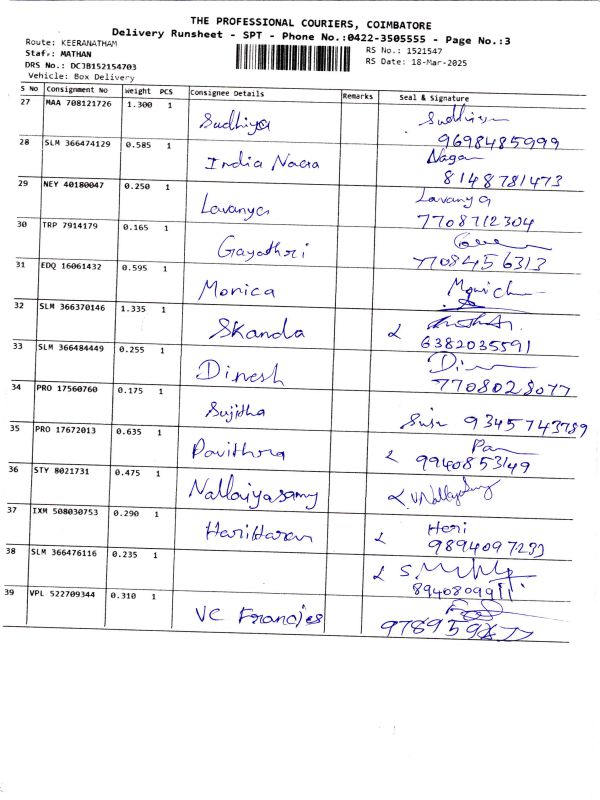 THE PROFESSIONAL COURIERS, COIMBATORE
Delivery Runsheet - SPT - Phone No.:0422-3505555 - Page No.:3
Route: KEERANATHAM
Staff: MATHAN
DRS No.: DCJB152154703
Vehicle: Box Delivery
RS No.: 1521547
RS Date: 18-Mar-2025
S No Consignment No Weight PCS Consignee Details Remarks Seal & Signature
27 MAA 708121726 1.300 1 Sudhiya
9698485999
28 SLM 366474129 0.585 1 India Naga Nagan
8148781473
29 NEY 40180047 0.250 1 Lavanya Lavanya
7708712304
30 TRP 7914179 0.165 1 Gayathri
7708456313
31 EDQ 16061432 0.595 1 Monica
32 SLM 366370146 1.335 1 Skanda
6382035591
33 SLM 366484449 0.255 1 Dinesh
7708028077
34 PRO 17560760 0.175 1 Sujitha 9345743789
35 PRO 17672013 0.635 1 Pavithra
9940853149
36 STY 8021731 0.475 1 Nallaiyasamy
37 IXM 508030753 0.290 1 Hariharan Hari
9894097233
38 SLM 366476116 0.235 1
8940809911
39 VPL 522709344 0.310 1 VC Francies